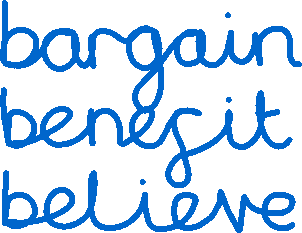 bargain
benefit
believe